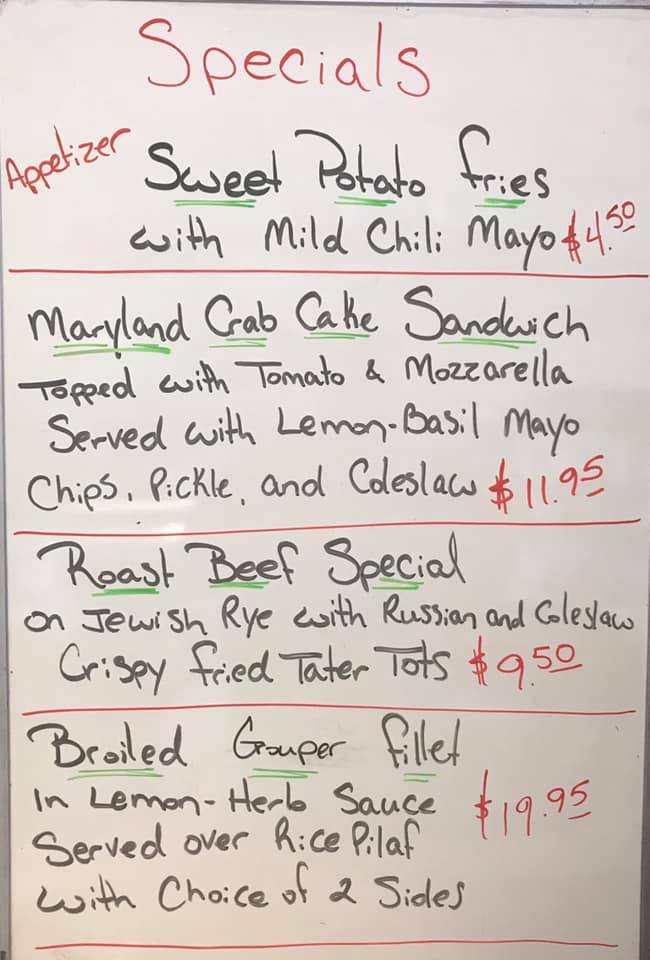 Specials
Appetizer Sweet Potato Fries
with Mild Chili Mayo $4.50
Maryland Crab Cake Sandwich
Topped with Tomato & Mozzarella
Served with Lemon-Basil Mayo
Chips, Pickle, and Coleslaw $11.95
Roast Beef Special
on Jewish Rye with Russian and Coleslaw
Crispy Fried Tater Tots $9.50
Broiled Grouper Fillet
In Lemon-Herb Sauce $19.95
Served over Rice Pilaf
with Choice of 2 Sides